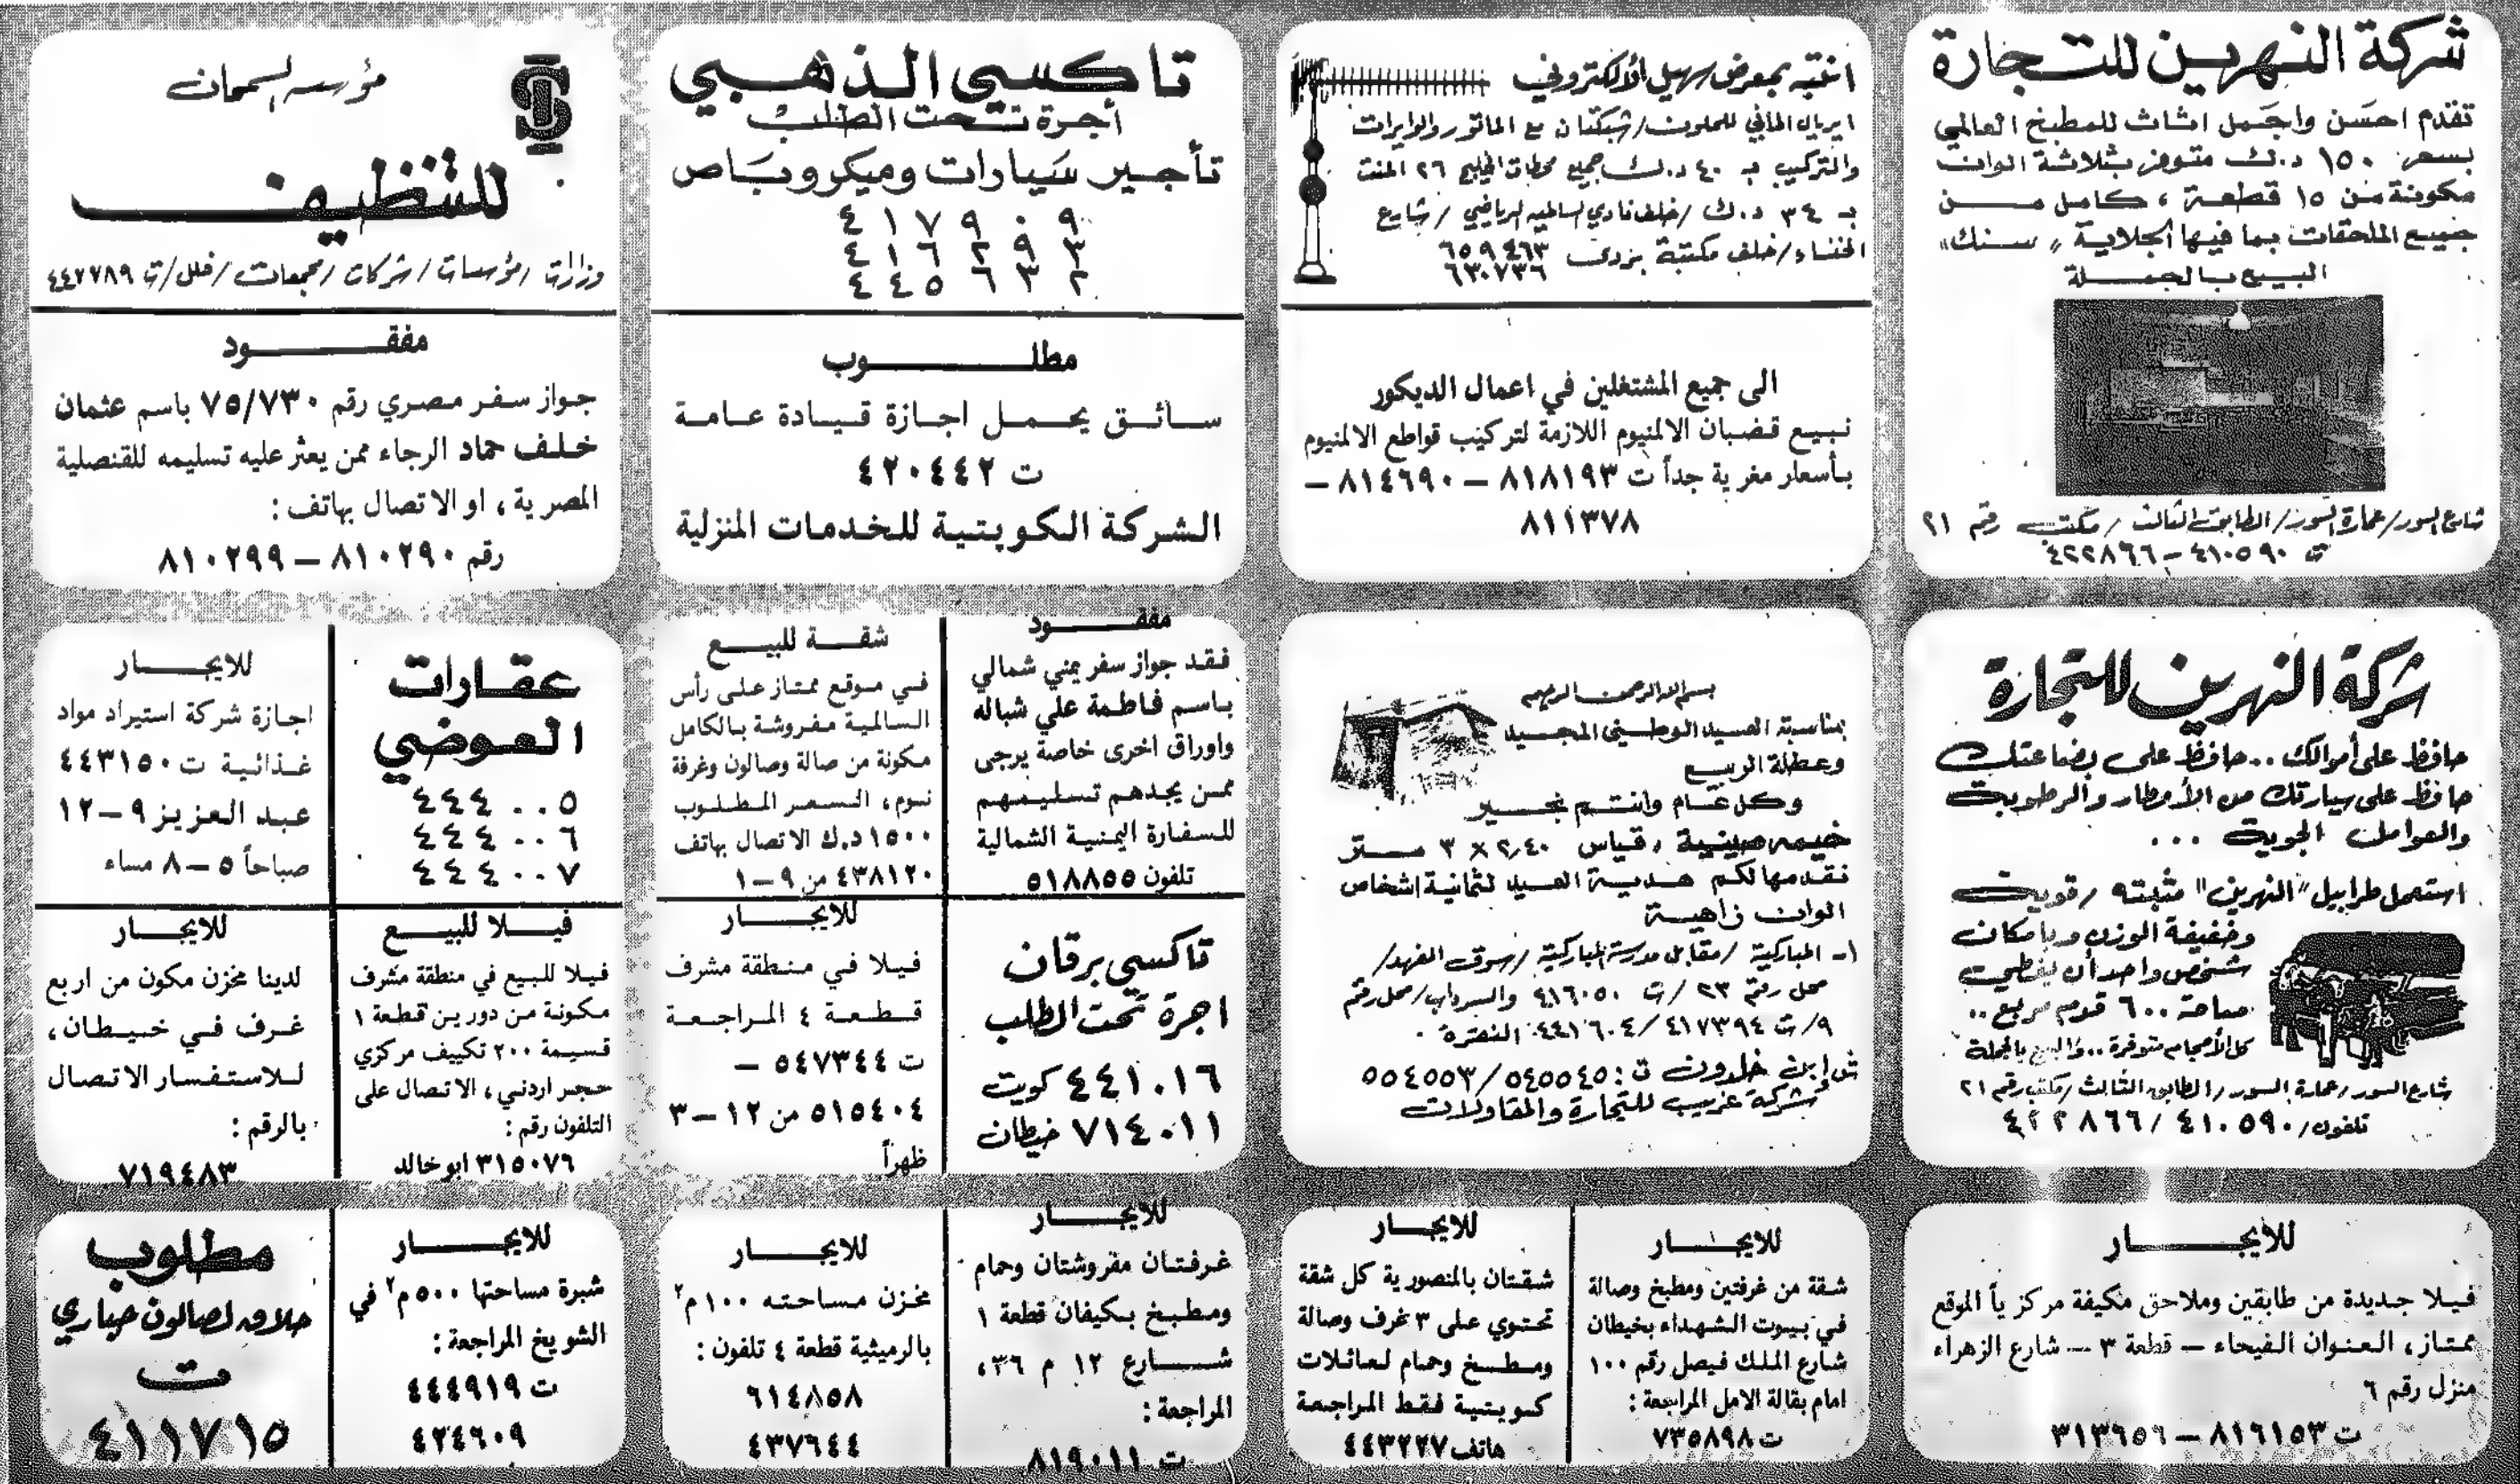 شركة النهرين للتجارة
تقدم احسن واجمل اثاث للمطبخ العالمي
بسعر ١٥٠ د.ك متوفر بثلاثة الوان
مكونة من ١٥ قطعة ، كامل من
جميع الملحقات بما فيها الجلاية « سنك»
البيع بالجملة
شارع السور/عمارة السور/الطابق الثالث / مكتب رقم ٢١
ت ٤١٠٥٩٠ – ٤٢٢٨٦٦
انتبه بمعرض سهيل الألكتروني
ايريال الماني للملون/شبكتان مع الماتور والوايرات
والتركيب بـ ٤٠ د.ك جميع محطات الخليج ٢٦ المنت
بـ ٣٤ د.ك /خلف نادي السالمية الرياضي / شارع
الخنساء/خلف مكتبة بزدى ٦٥٩٤٦٣
٦٣٠٧٣٦
الى جميع المشتغلين في اعمال الديكور
نبيع قضبان الالمنيوم اللازمة لتركيب قواطع الالمنيوم
بأسعار مغرية جداً ت ٨١٨١٩٣ – ٨١٤٦٩٠ –
٨١١٣٧٨
تاكسي الذهبي
أجرة تحت الطلب
تأجير سيارات وميكروباص
٤١٧٩٠٩
٤١٦٢٩٣
٤٤٥٦٣٢
مطلــوب
سائق يحمل اجازة قيادة عامة
ت ٤٢٠٤٤٢
الشركة الكويتية للخدمات المنزلية
مؤسسه السمحان
للتنظيف
وزارات /مؤسسات /شركات /مجمعات /فلل/ت ٤٤٢٧٧٨٩
مفقــود
جواز سفر مصري رقم ٧٥/٧٣٠ باسم عثمان
خلف حماد الرجاء ممن يعثر عليه تسليمه للقنصلية
المصرية ، او الاتصال بهاتف :
رقم ٨١٠٢٩٠ – ٨١٠٢٩٩
شركة النهرين للتجارة
حافظ على أموالك .. حافظ على بضاعتك
حافظ على سيارتك من الأمطار والرطوبة
والعوامل الجوية ...
استعمل طرابيل "النهرين" مثبته / قوية
وخفيفة الوزن وبامكان
شخص واحد أن يغطي
مساحة ٦٠٠ قدم مربع ..
كل الأحجام متوفرة .. والبيع بالجملة
شارع السور /عمارة السور /الطابق الثالث /مكتب رقم ٢١
تلفون/ ٤١٠٥٩٠ / ٤٢٢٨٦٦
بسم الله الرحمن الرحيم
بمناسبة العيد الوطني المجيد
وعطلة الربيع
وكل عام وأنتم بخير
خيمه صينية ، قياس ٢،٤٠ × ٣ متر
نقدمها لكم هدية العيد لثمانية اشخاص
الوان زاهية
١- المباركية /مقابل مدرسة المباركية /سوق الفهد/
محل رقم ٢٣ /ت ٤١٦٠٥٠ والسرداب/محل رقم
٩/ت ٤١٧٣٩٤ /٤٤١٦٠٤ النقرة
ش ابن خلدون ت : ٥٤٥٥٤٥ /٥٥٤٥٥٣
شركة غريب للتجارة والمقاولات
مفقــود
فقد جواز سفر يمني شمالي
باسم فاطمة علي شباله
واوراق اخرى خاصة يرجى
ممن يجدهم تسليمهم
للسفارة اليمنية الشمالية
تلفون ٥١٨٨٥٥
شقــة للبيــع
في موقع ممتاز على رأس
السالمية مفروشة بالكامل
مكونة من صالة وصالون وغرفة
نوم، السعر المطلوب
١٥٠٠ د.ك الاتصال بهاتف
٤٣٨١٢٠ من ٩ – ١
تاكسي برقان
اجرة تحت الطلب
٤٤١٠١٦ كويت
٧١٤٠١١ خيطان
للايجــار
فيلا في منطقة مشرف
قطعة ٤ المراجعة
ت ٥٤٧٣٤٤ –
٥١٥٤٠٤ من ١٢ – ٣
ظهراً
عقارات
العوضي
٤٤٤٠٠٥
٤٤٤٠٠٦
٤٤٤٠٠٧
للايجــار
اجازة شركة استيراد مواد
غذائية ت ٤٤٣١٥٠
عبد العزيز ٩ – ١٢
صباحاً ٥ – ٨ مساء
فيــلا للبيــع
فيلا للبيع في منطقة مشرف
مكونة من دورين قطعة ١
قسيمة ٢٠٠ تكييف مركزي
حجر اردني ، الاتصال على
التلفون رقم :
٣١٥٠٧٦ ابو خالد
للايجــار
لدينا مخزن مكون من اربع
غرف في خيطان ،
للاستفسار الاتصال
بالرقم :
٧١٩٤٨٣
للايجــار
فيلا جديدة من طابقين وملاحق مكيفة مركزياً الموقع
ممتاز ، العنوان الفيحاء – قطعة ٣ – شارع الزهراء
منزل رقم ٦
ت ٨١٦١٥٣ – ٣١٣٦٥٦
للايجــار
شقة من غرفتين ومطبخ وصالة
في بيوت الشهداء بخيطان
شارع الملك فيصل رقم ١٠٠
امام بقالة الامل المراجعة :
ت ٧٣٥٨٩٨
للايجــار
شقتان بالمنصورية كل شقة
تحتوي على ٣ غرف وصالة
ومطبخ وحمام لعائلات
كويتية فقط المراجعة
هاتف ٤٤٣٢٢٧
للايجــار
غرفتان مفروشتان وحمام
ومطبخ بكيفان قطعة ١
شــارع ١٢ م ٣٦،
المراجعة :
ت ٨١٩٠١١
للايجــار
مخزن مساحته ١٠٠ م٢
بالرميثية قطعة ٤ تلفون :
٦١٤٨٥٨
٤٣٧٦٤٤
للايجــار
شبرة مساحتها ٥٠٠ م٢ في
الشويخ المراجعة :
ت ٤٤٤٩١٩
٤٢٤٦٠٩
مطلوب
حلاق لصالون حباري
ت
٤١١٧١٥